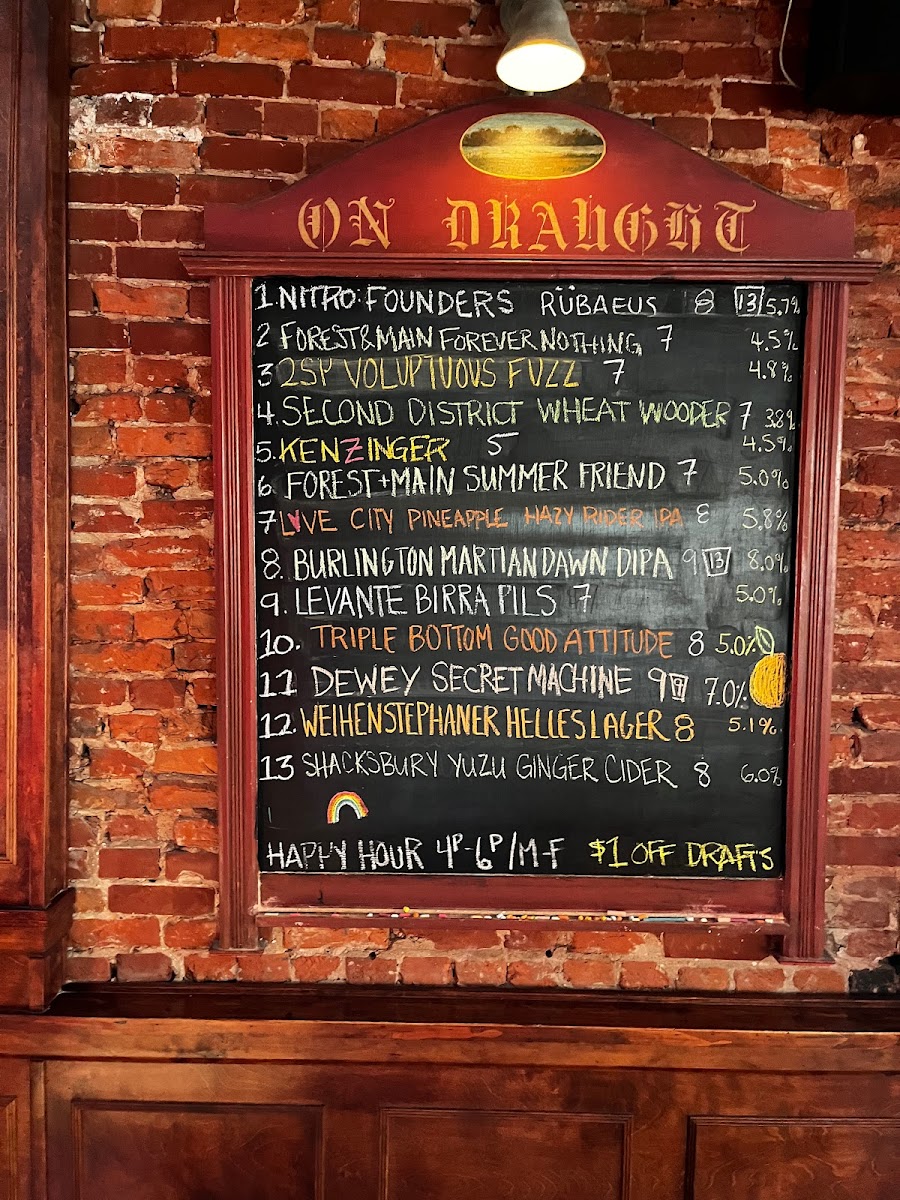 ON DRAUGHT
1. NITRO: FOUNDERS RÜBAEUS 8 13 5.7%
2 FOREST & MAIN FOREVER NOTHING 7 4.5%
3 2SP VOLUPTUOUS FUZZ 7 4.8%
4. SECOND DISTRICT WHEAT WOODER 7 3.8%
5. KENZINGER 5 4.5%
6. FOREST + MAIN SUMMER FRIEND 7 5.0%
7 LOVE CITY PINEAPPLE HAZY RIDER IPA 8 5.8%
8. BURLINGTON MARTIAN DAWN DIPA 9 13 8.0%
9. LEVANTE BIRRA PILS 7 5.0%
10. TRIPLE BOTTOM GOOD ATTITUDE 8 5.0%
11 DEWEY SECRET MACHINE 9 7.0%
12. WEIHENSTEPHANER HELLES LAGER 8 5.1%
13 SHACKSBURY YUZU GINGER CIDER 8 6.0%
HAPPY HOUR 4P-6P/M-F $1 OFF DRAFTS